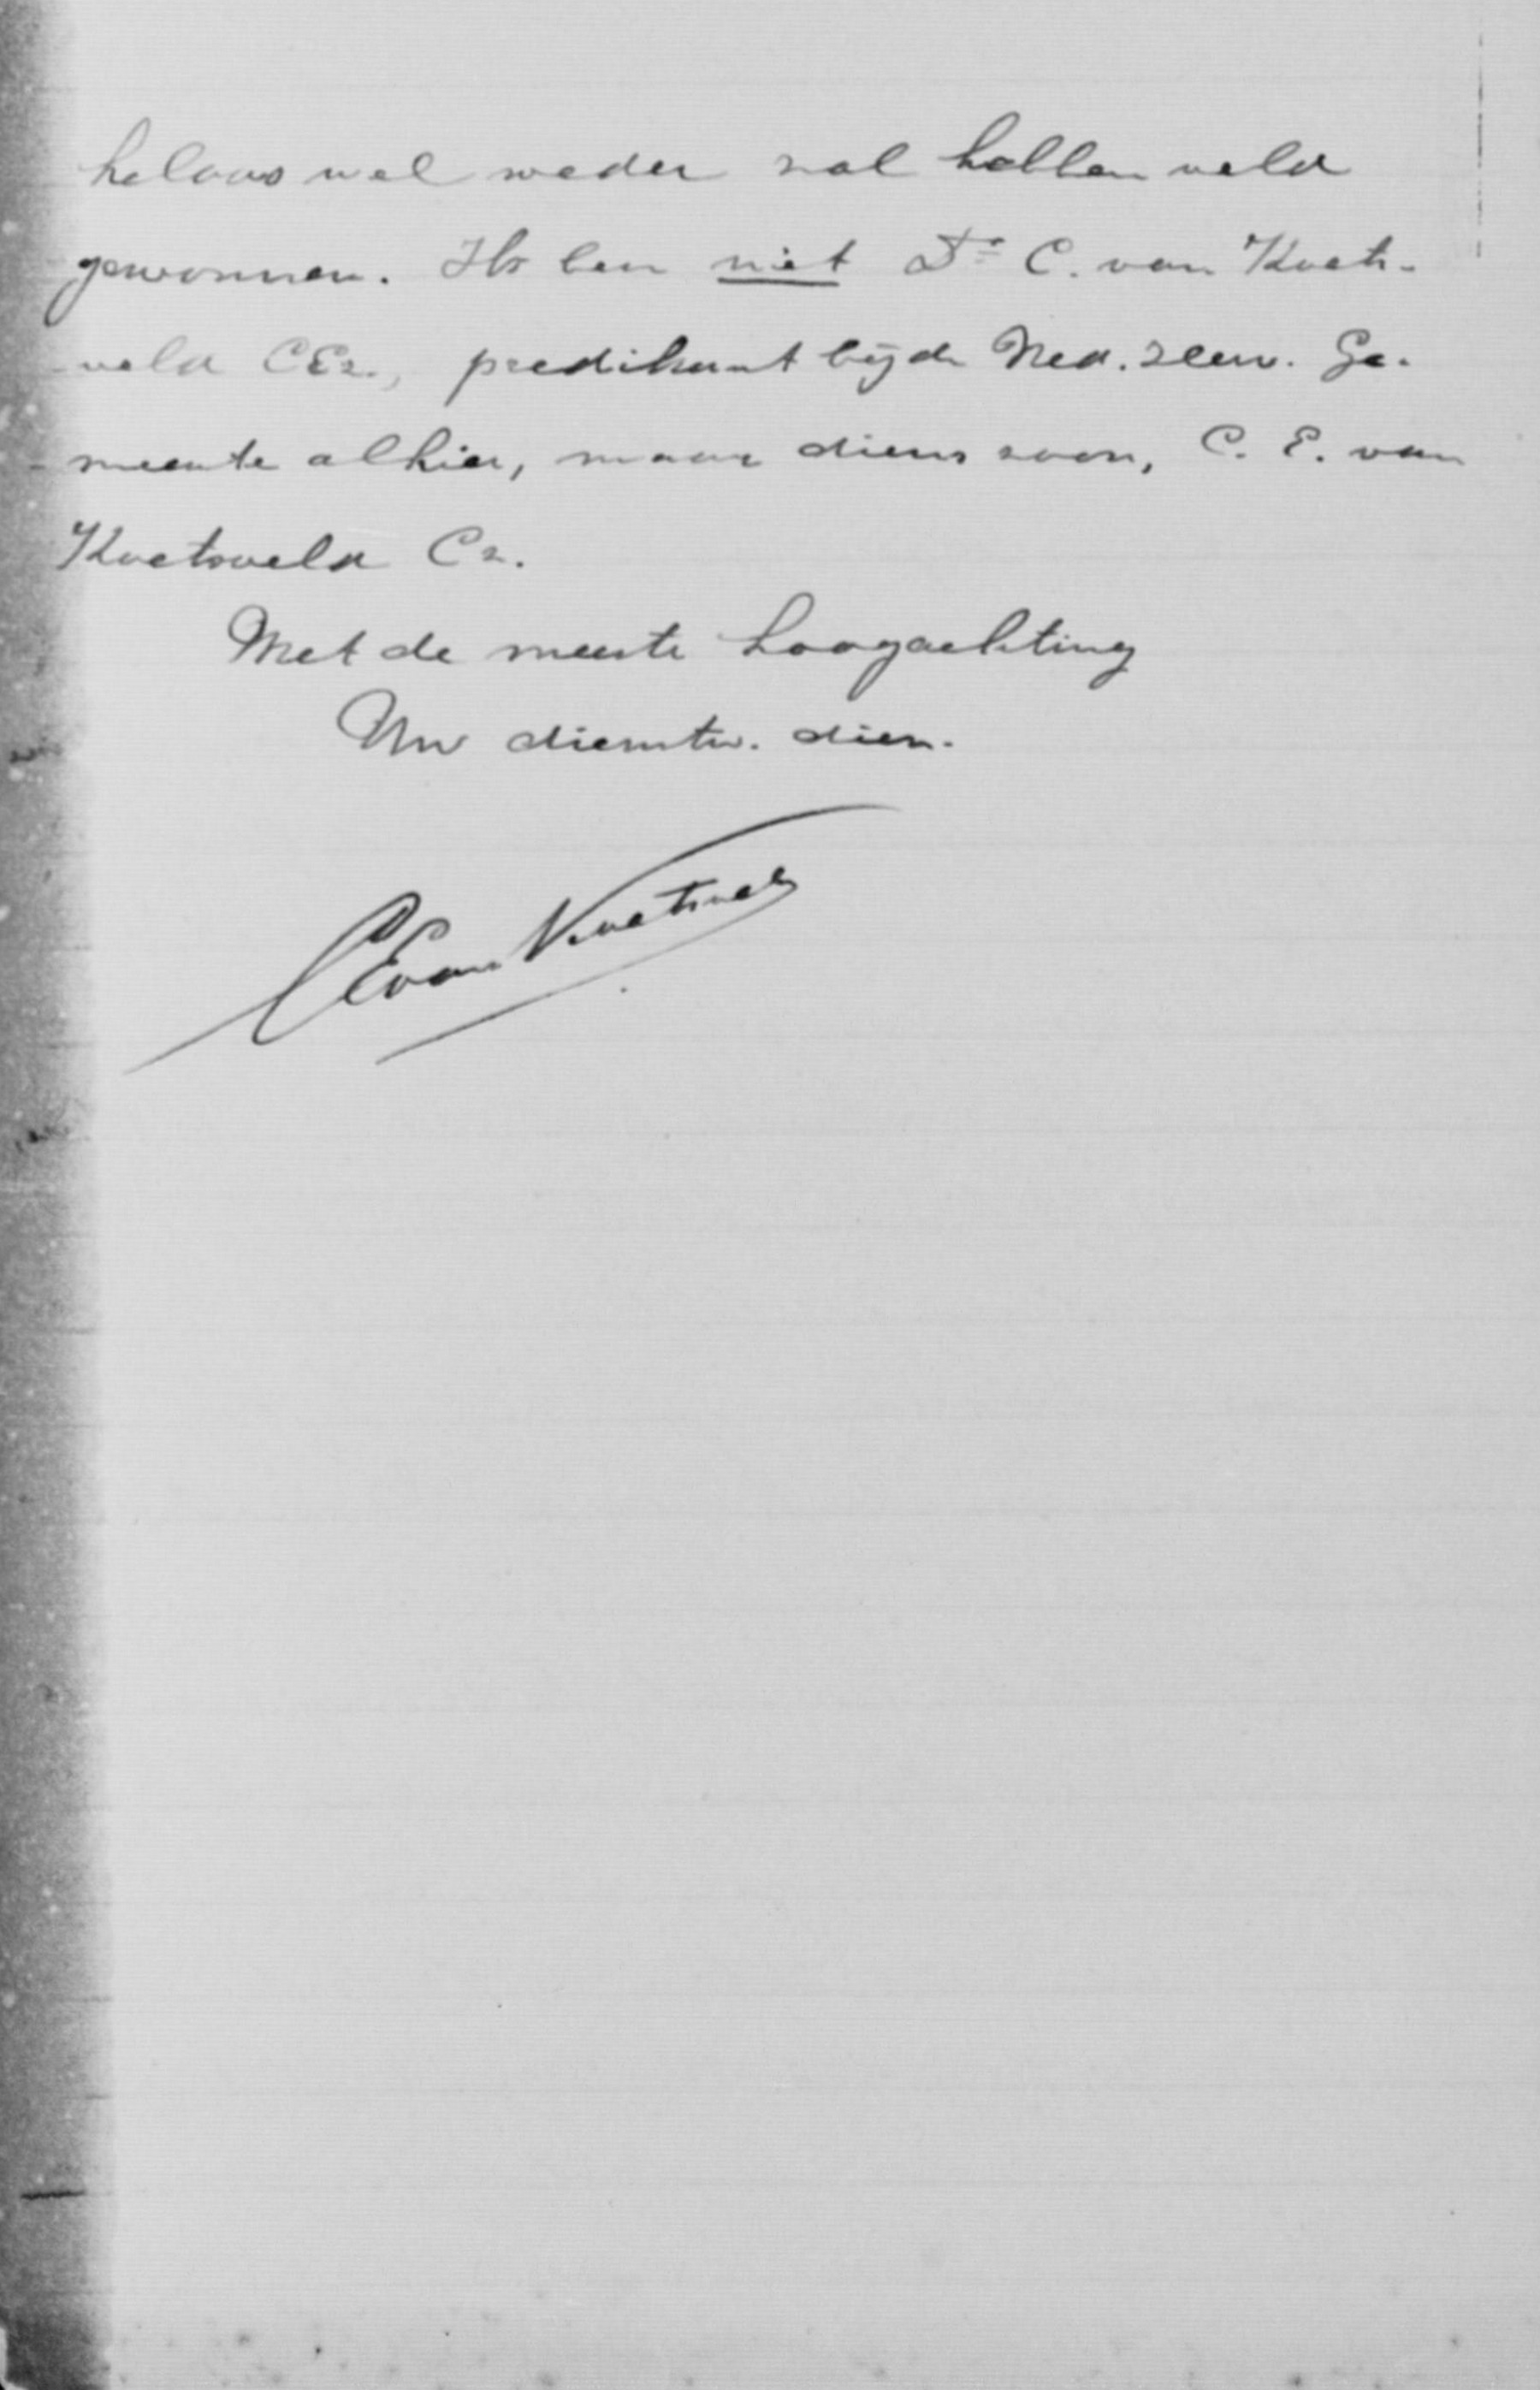 helaas wel weder zal hebben veld
gewonnen. Ik ben niet Ds. C. van Koets-
veld CEz., predikant bij de Ned. Herv. Ge-
meente alhier, maar diens zoon, C. E. van
Koetsveld Cz.
Met de meeste hoogachting
Uw dienstw. dien.
CE van Koetsveld